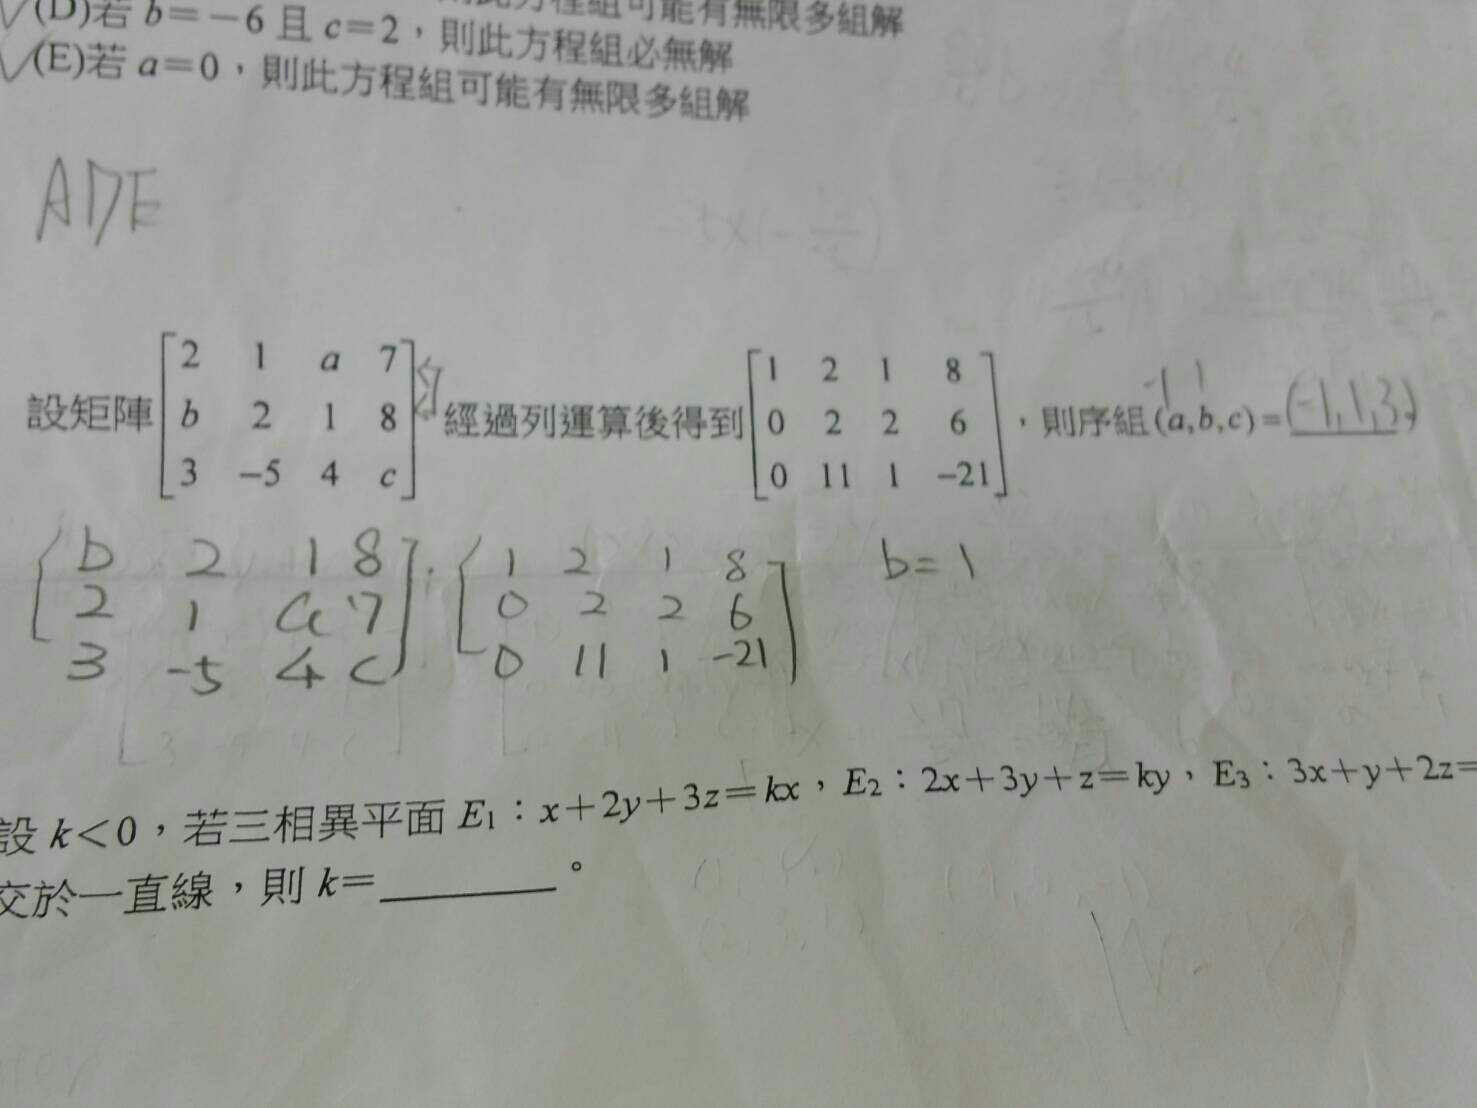 則此方程組可能有無限多組解
(D)若 b=−6 且 c=2，則此方程組必無解
(E)若 a=0，則此方程組可能有無限多組解
ADE
設矩陣 [2 1 a 7; b 2 1 8; 3 −5 4 c] 經過列運算後得到 [1 2 1 8; 0 2 2 6; 0 11 1 −21]，則序組(a,b,c)=(-1,1,3)
-1 1
b 2 1 8 1 2 1 8 b=1
2 1 a 7 0 2 2 6
3 -5 4 c 0 11 1 -21
設 k<0，若三相異平面 E1：x+2y+3z=kx，E2：2x+3y+z=ky，E3：3x+y+2z=
交於一直線，則 k=________。